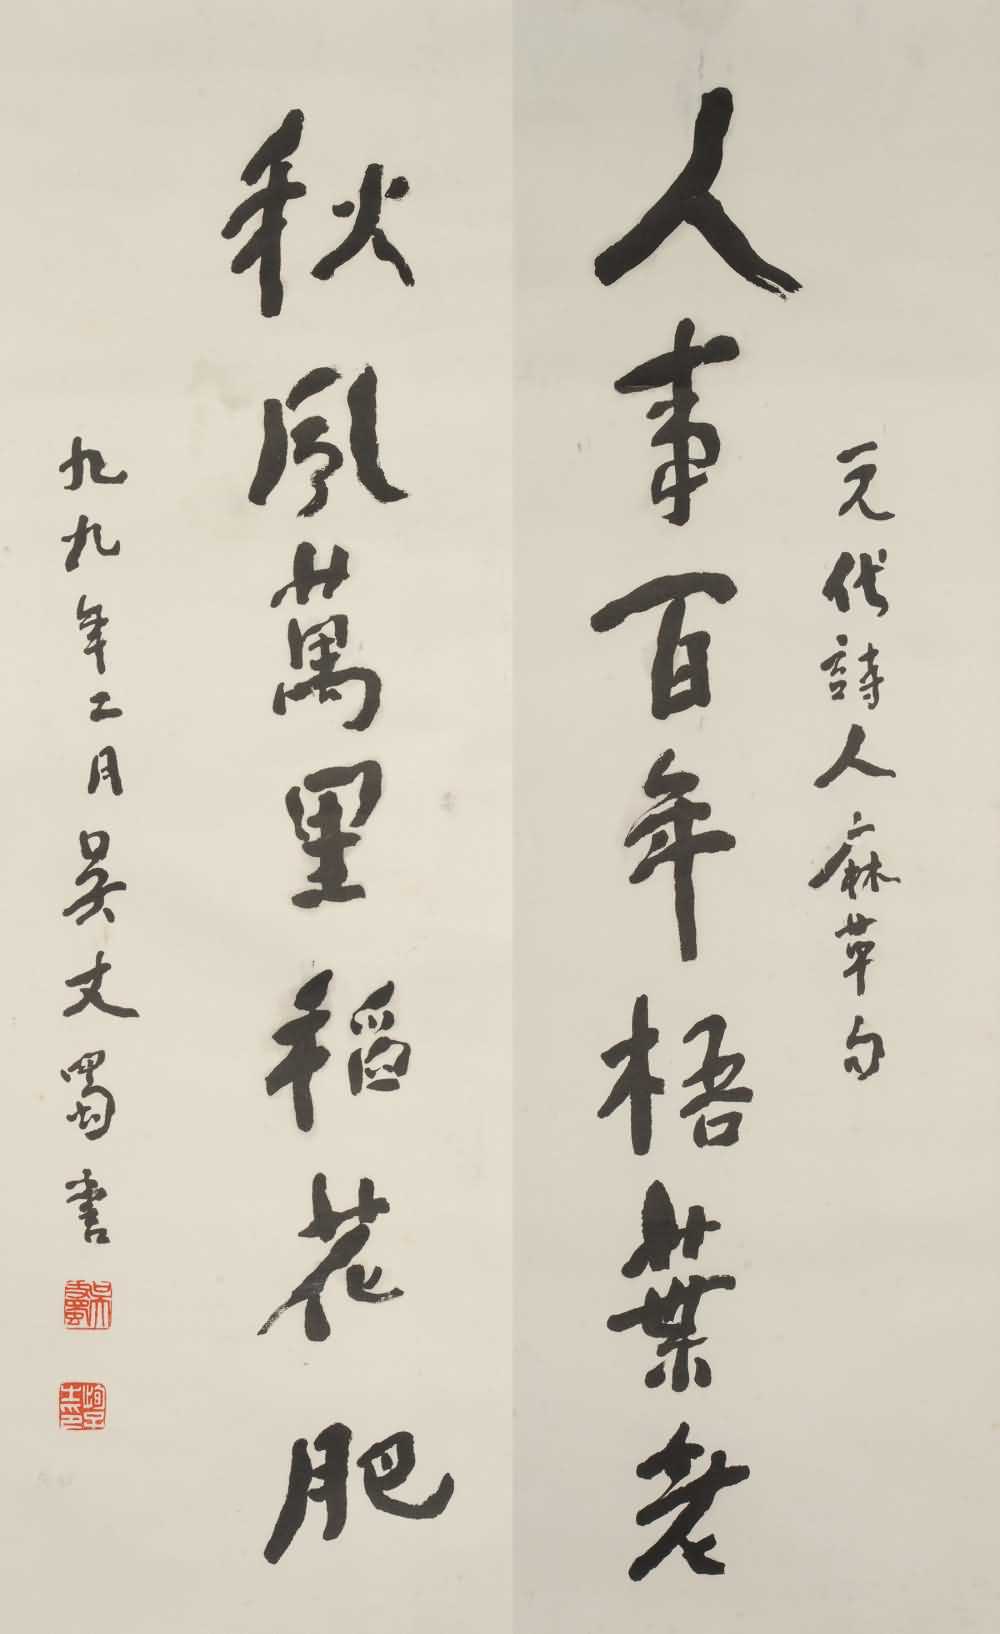 元代詩人麻革句
人事百年梧葉老
秋風萬里稻花肥
九九年二月吳丈蜀書